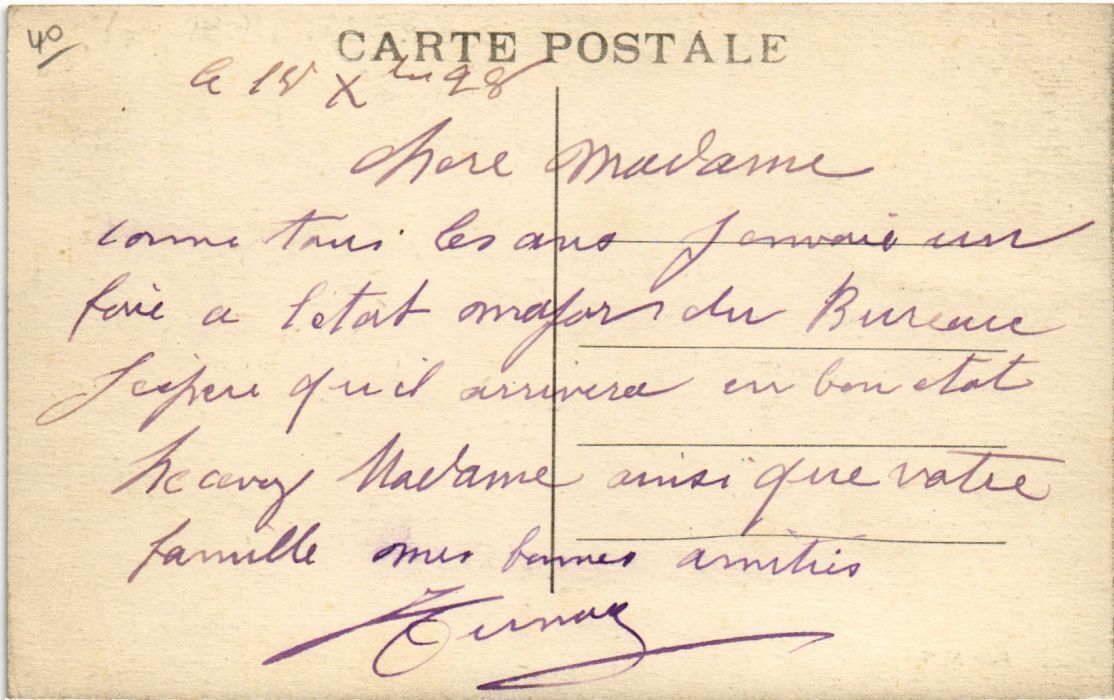 40
CARTE POSTALE
le 18 Xbre 28
Chere Madame
comme tous les ans J envoie un
foie a l etat major du Bureau
J espere qu il arrivera en bon etat
Recevez Madame ainsi que votre
famille mes bonnes amitiés